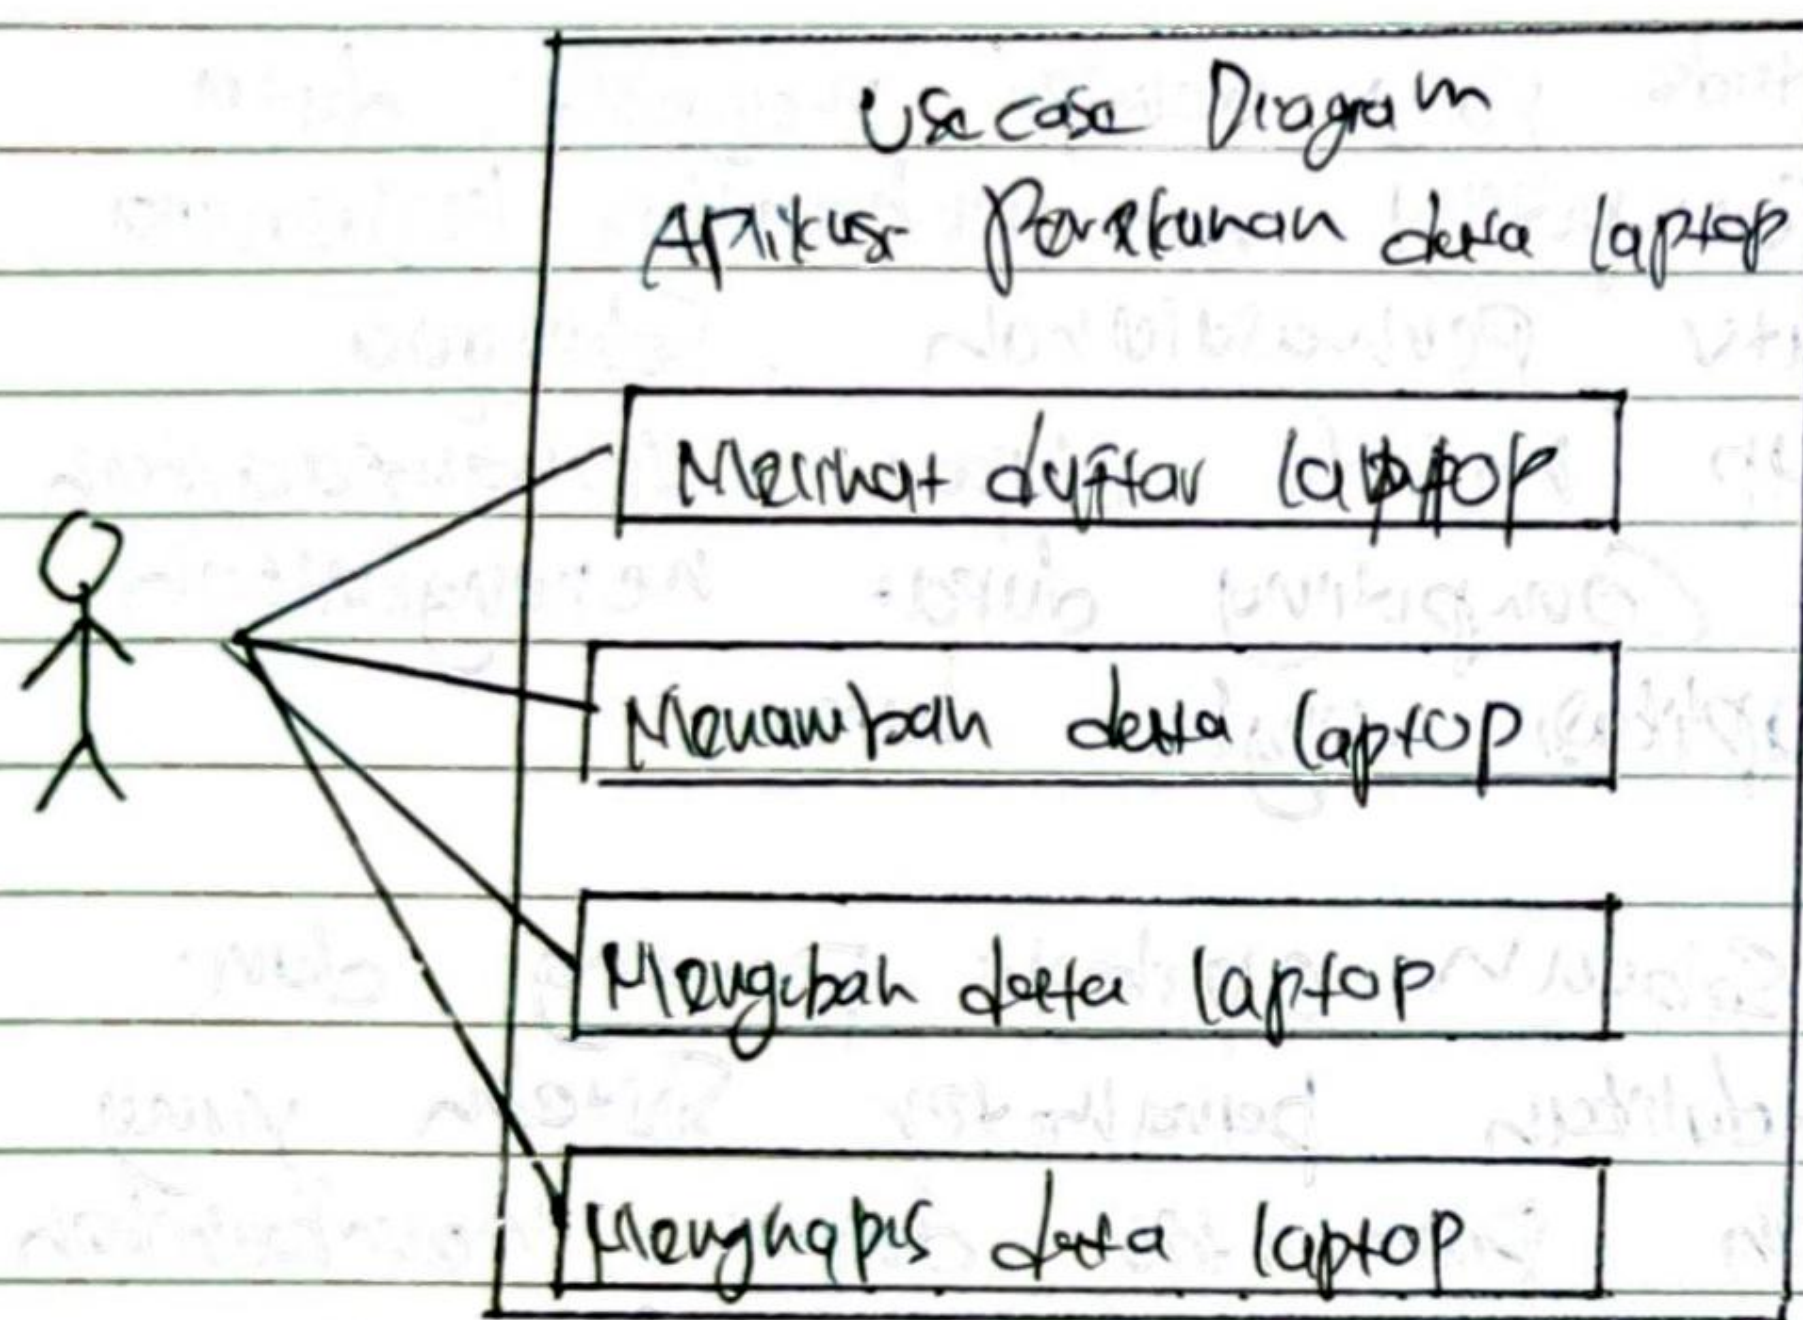 Usecase Diagram
Aplikasi Perekaman data laptop
Melihat daftar laptop
Menambah data laptop
Mengubah data laptop
Menghapus data laptop